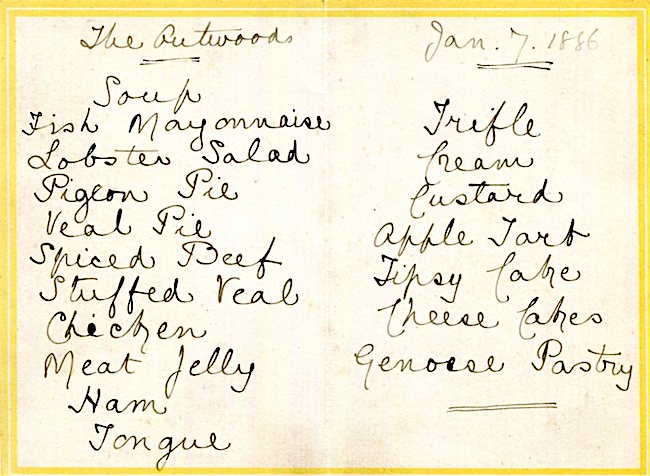 The Outwoods
Soup
Fish Mayonnaise
Lobster Salad
Pigeon Pie
Veal Pie
Spiced Beef
Stuffed Veal
Chicken
Meat Jelly
Ham
Tongue
Jan. 7. 1886
Trifle
Cream
Custard
Apple Tart
Tipsy Cake
Cheese Cakes
Genoese Pastry